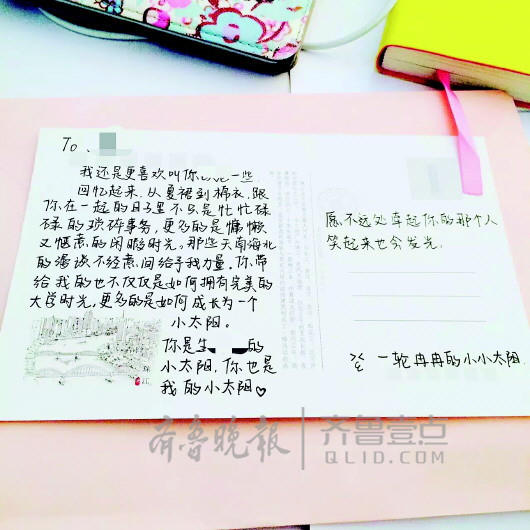 To、
我还是更喜欢叫你 一些
回忆起来,从夏裙到棉衣,跟
你在一起的日子里不只是忙忙碌
碌的琐碎事务,更多的是慵懒
又惬意的闲暇时光。那些天南海北
的漫谈不经意间给予我力量。你带
给我的也不仅仅是如何拥有完美的
大学时光,更多的是如何成长为一个
小太阳。
你是生 的
小太阳,你也是
我的小太阳♡
愿不远处牵起你的那个人
笑起来也会发光。
一轮冉冉的小小太阳
齐鲁晚报 齐鲁壹点
QLID.COM